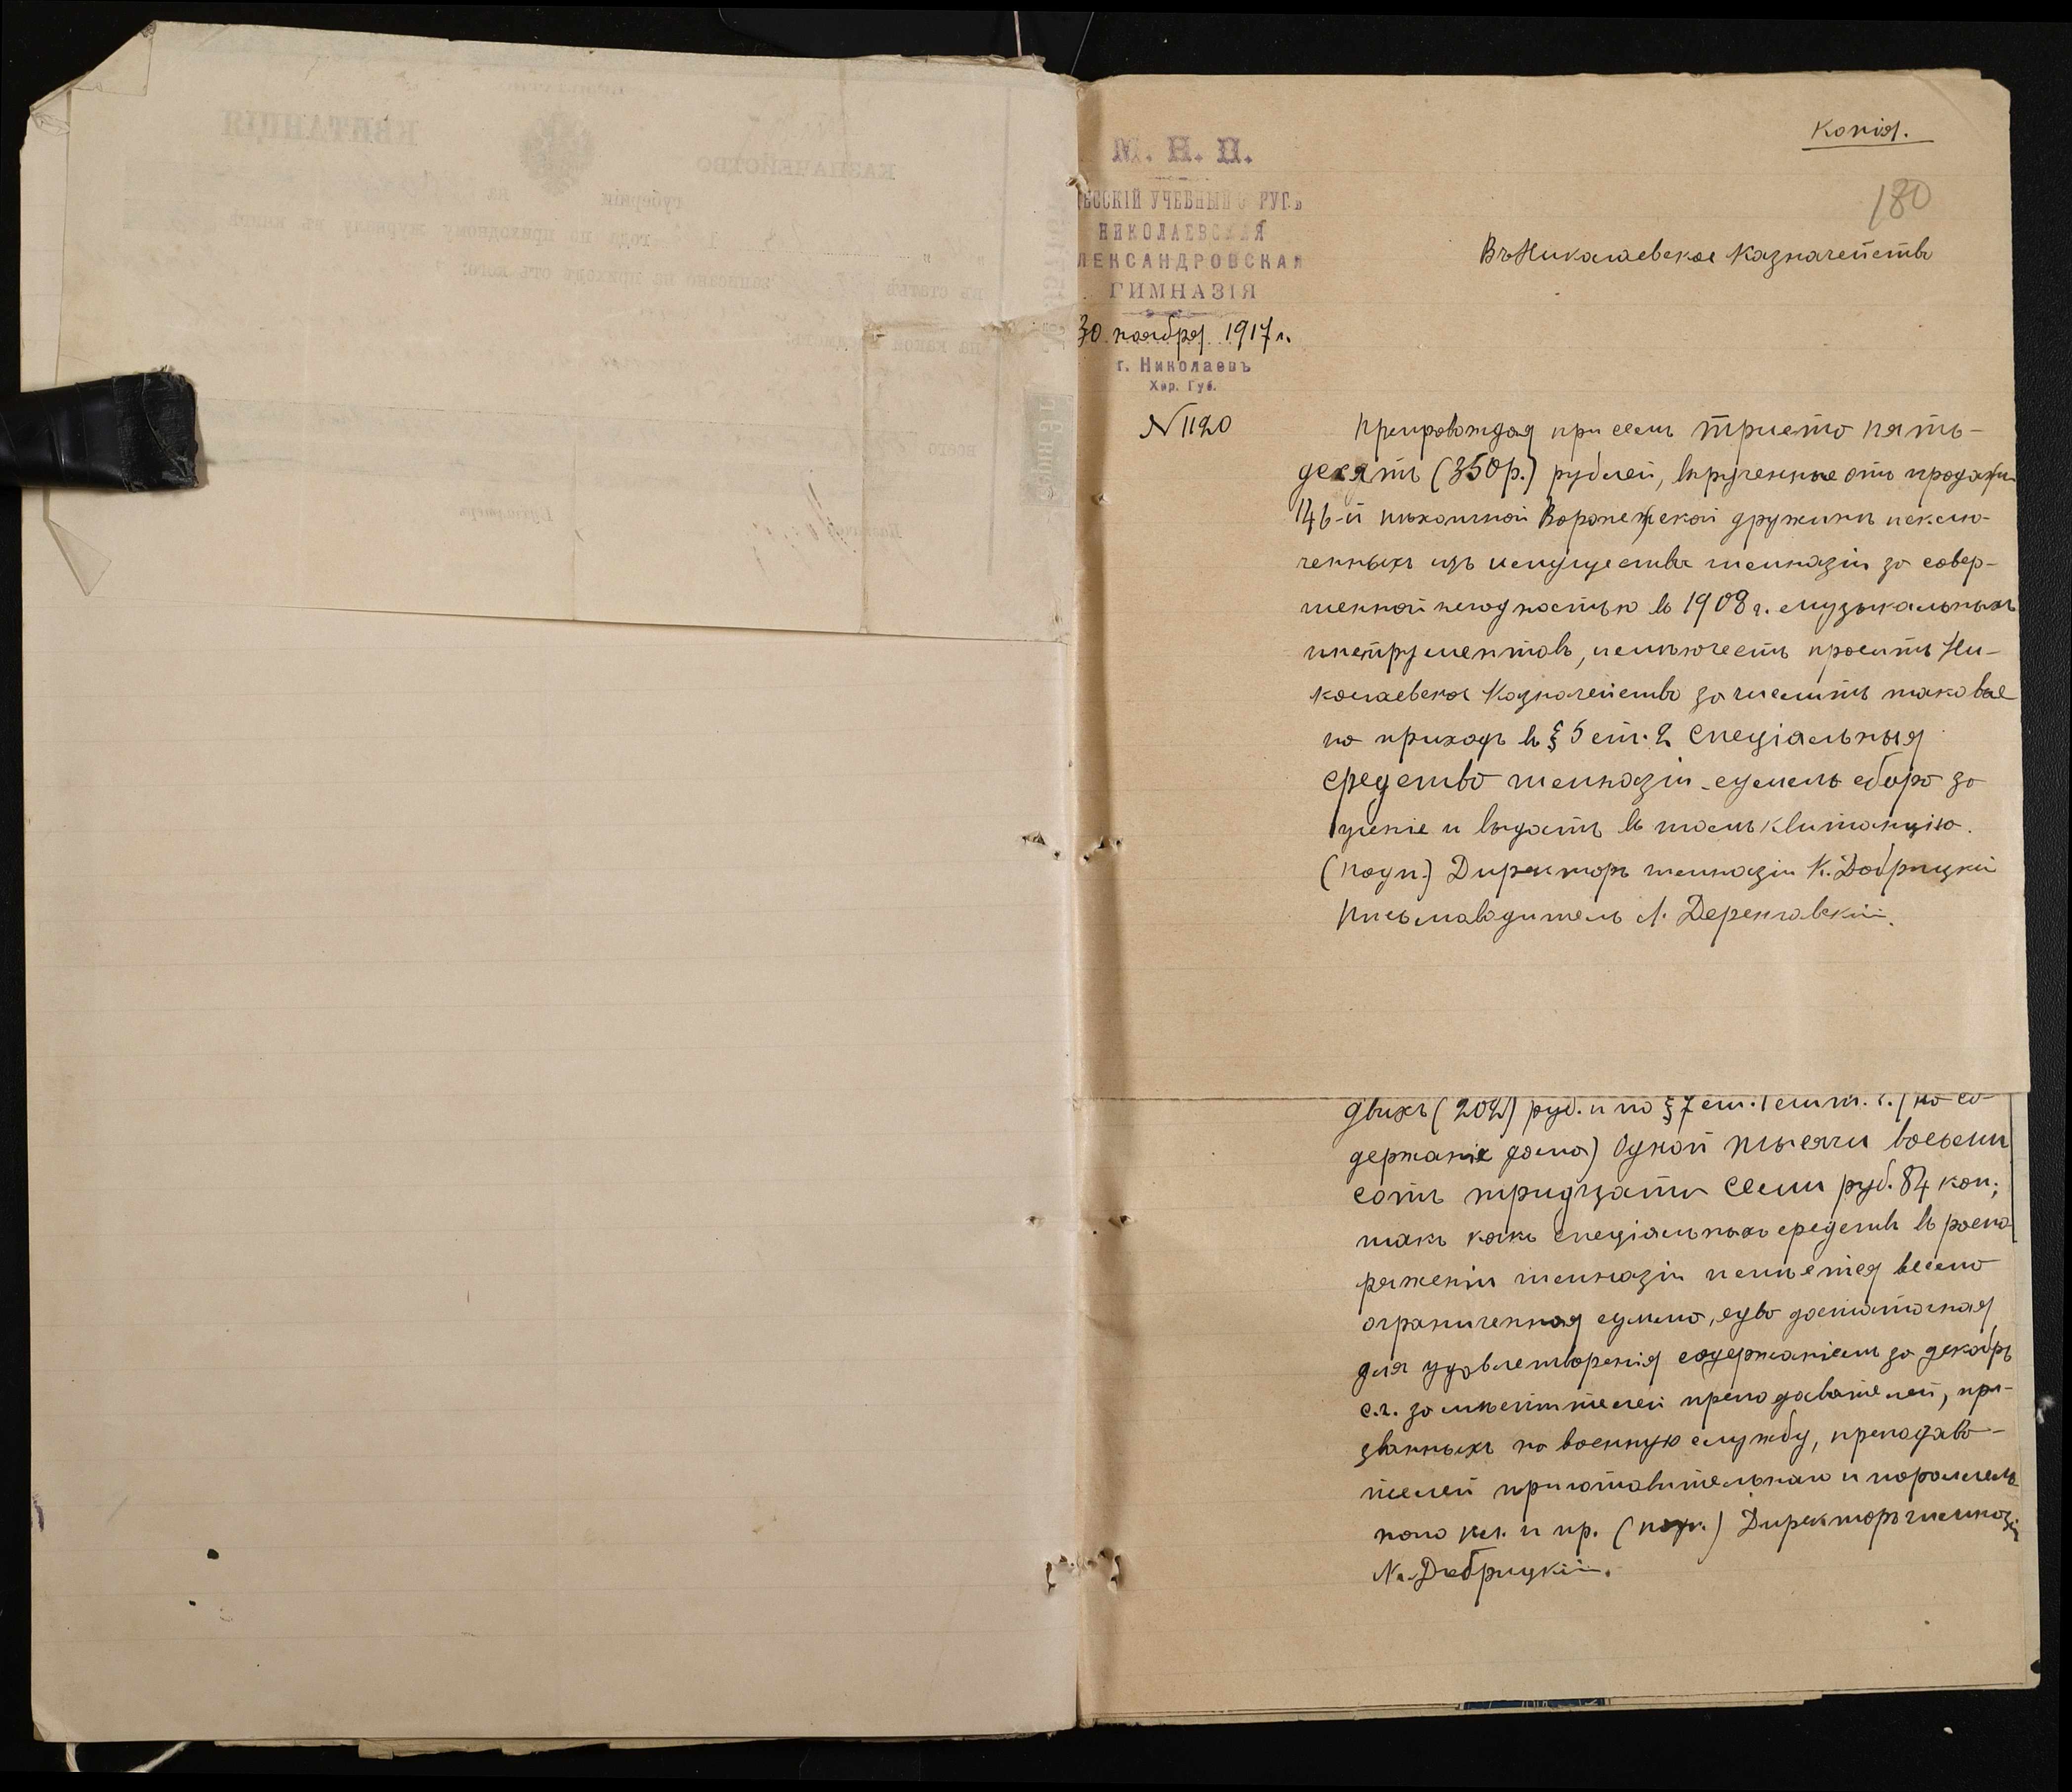 Копія.
180
М. Н. П.
ЕССКІЙ УЧЕБНЫЙ ОКРУГЪ
НИКОЛАЕВСКАЯ
ЛЕКСАНДРОВСКАЯ
ГИМНАЗІЯ
30 ноября 1917 г.
г. Николаевъ
Хер. Губ.
N 1120
Въ Николаевское Казначейство
Препровождая при семъ триста пять-
десятъ (350 р.) рублей, вырученные отъ продажи
146-й пѣхотной Воронежской дружинѣ исклю-
ченныхъ изъ имущества гимназіи за совер-
шенной негодностью въ 1908 г. музыкальныхъ
инструментовъ, имѣю честь просить Ни-
колаевское Казначейство зачислить таковые
на приходъ въ § 5 ст. 2 спеціальныя
средства гимназіи - суммы сбора за
ученіе и выдать въ томъ квитанцію.
(подп.) Директоръ гимназіи К. Добрицкій
Письмоводитель Деренговскій.
двухъ (202) руб. и по § 7 ст. 1 (на со-
держаніе дома) Одной тысячи восьми
сотъ тридцати семи руб. 84 коп;
такъ какъ спеціальныхъ средствъ въ распо-
ряженіи гимназіи имѣется весьма
ограниченная сумма, едва достаточная
для удовлетворенія содержаніемъ за декабрь
с.г. замѣстителей преподавателей, при-
званныхъ на военную службу, преподава-
телей приготовительнаго и параллель
наго кл. и пр. (подп.) Директоръ гимназіи
К. Добрицкій.
КВИТАНЦІЯ
КАЗНАЧЕЙСТВО
губерніи
года по приходному журналу въ книгѣ
въ статьѣ
записано на приходъ отъ кого:
на какой предметъ:
всего
Бухгалтеръ